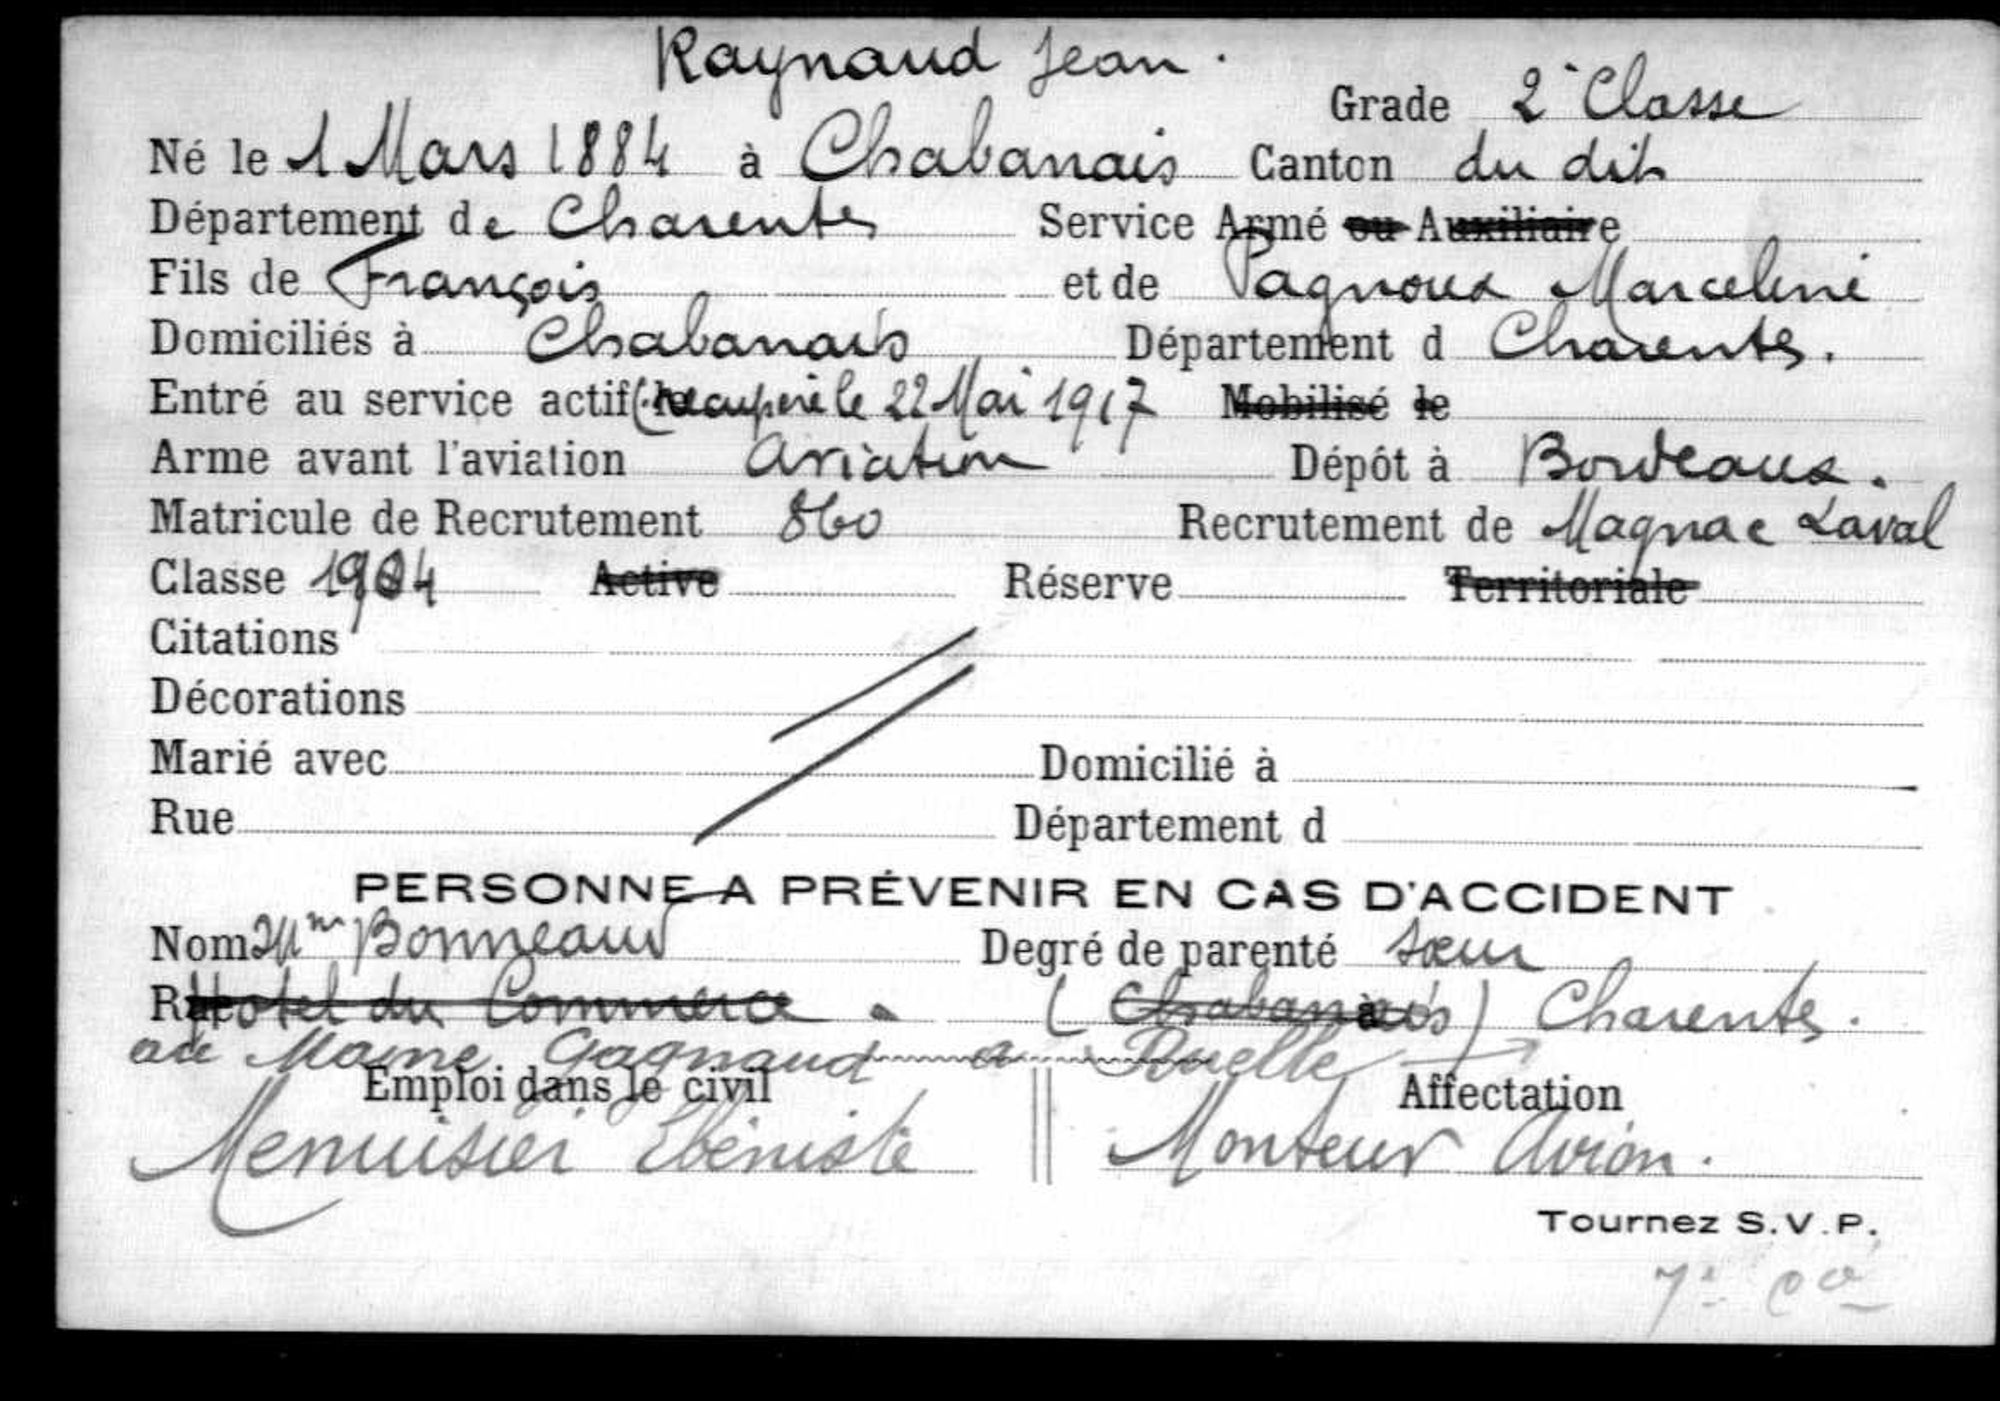 Raynaud Jean.
Grade 2e Classe
Né le 1 Mars 1884 à Chabanais Canton du dit
Département de Charente Service Armé ou Auxiliaire
Fils de François et de Pagnoux Marceline
Domiciliés à Chabanais Département d Charente.
Entré au service actif (récupéré le 22 Mai 1917 Mobilisé le
Arme avant l'aviation Aviation Dépôt à Bordeaux.
Matricule de Recrutement 860 Recrutement de Magnac Laval
Classe 1904 Active Réserve Territoriale
Citations
Décorations
Marié avec Domicilié à
Rue Département d
PERSONNE A PRÉVENIR EN CAS D'ACCIDENT
Nom Mme Bonneaud Degré de parenté sœur
Rue Hotel du Commerce à (Chabanais) Charente.
au Maine Gagnaud a Ruelle
Emploi dans le civil Affectation
Menuisier Ebéniste Monteur Avion.
Tournez S.V.P.
7e Cie